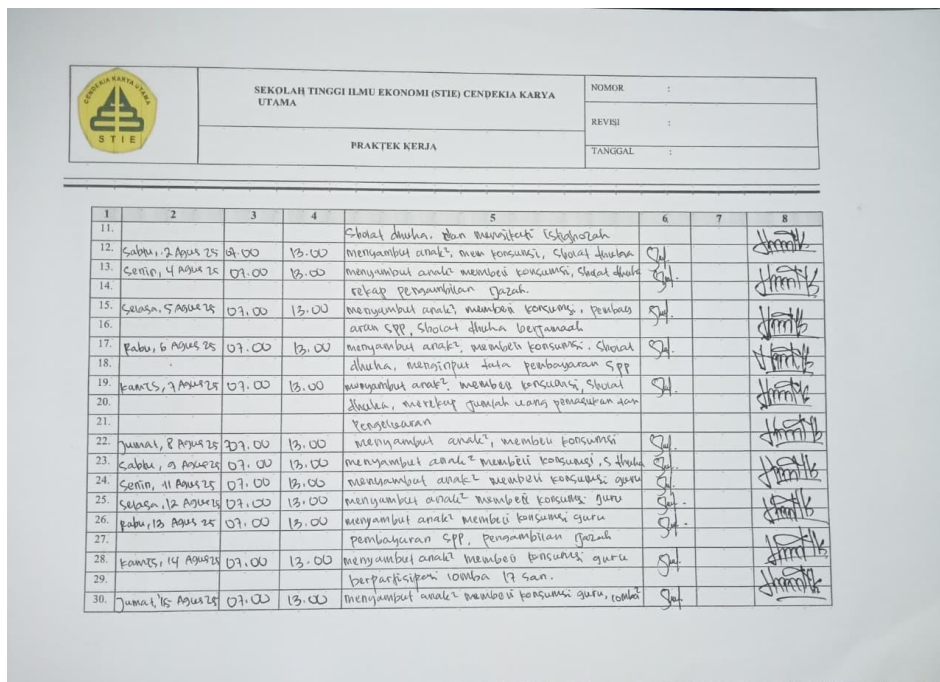 CENDEKIA KARYA UTAMA
STIE
SEKOLAH TINGGI ILMU EKONOMI (STIE) CENDEKIA KARYA
UTAMA
PRAKTEK KERJA
NOMOR :
REVISI :
TANGGAL :
1 2 3 4 5 6 7 8
11. Sholat dhuha, dan mengikuti Istighozah
12. Sabtu, 2 Agus 25 07.00 13.00 menyambut anak², mem konsumsi, Sholat dhuha
13. Senin, 4 Agus 25 07.00 13.00 menyambut anak² memberi konsumsi, Sholat dhuha
14. rekap pengambilan Ijazah.
15. Selasa, 5 Agus 25 07.00 13.00 menyambut anak², memberi konsumsi, pembay
16. aran SPP, Sholat dhuha berjamaah
17. Rabu, 6 Agus 25 07.00 13.00 menyambut anak², memberi konsumsi, Sholat
18. dhuha, menginput data pembayaran SPP
19. Kamis, 7 Agus 25 07.00 13.00 menyambut anak², memberi konsumsi, Sholat
20. dhuha, merekap jumlah uang pemasukan dan
21. Pengeluaran
22. Jumat, 8 Agus 25 07.00 13.00 menyambut anak², memberi konsumsi
23. Sabtu, 9 Agus 25 07.00 13.00 menyambut anak² memberi konsumsi, S dhuha
24. Senin, 11 Agus 25 07.00 13.00 menyambut anak² memberi konsumsi guru
25. Selasa, 12 Agus 25 07.00 13.00 menyambut anak² memberi konsumsi guru
26. Rabu, 13 Agus 25 07.00 13.00 menyambut anak² memberi konsumsi guru
27. pembayaran SPP, pengambilan Ijazah
28. Kamis, 14 Agus 25 07.00 13.00 menyambut anak² memberi konsumsi guru
29. berpartisipasi lomba 17 san.
30. Jumat, 15 Agus 25 07.00 13.00 menyambut anak² memberi konsumsi guru, lomba²